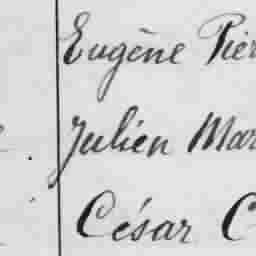 Eugène Pier
Julien Mar
César C